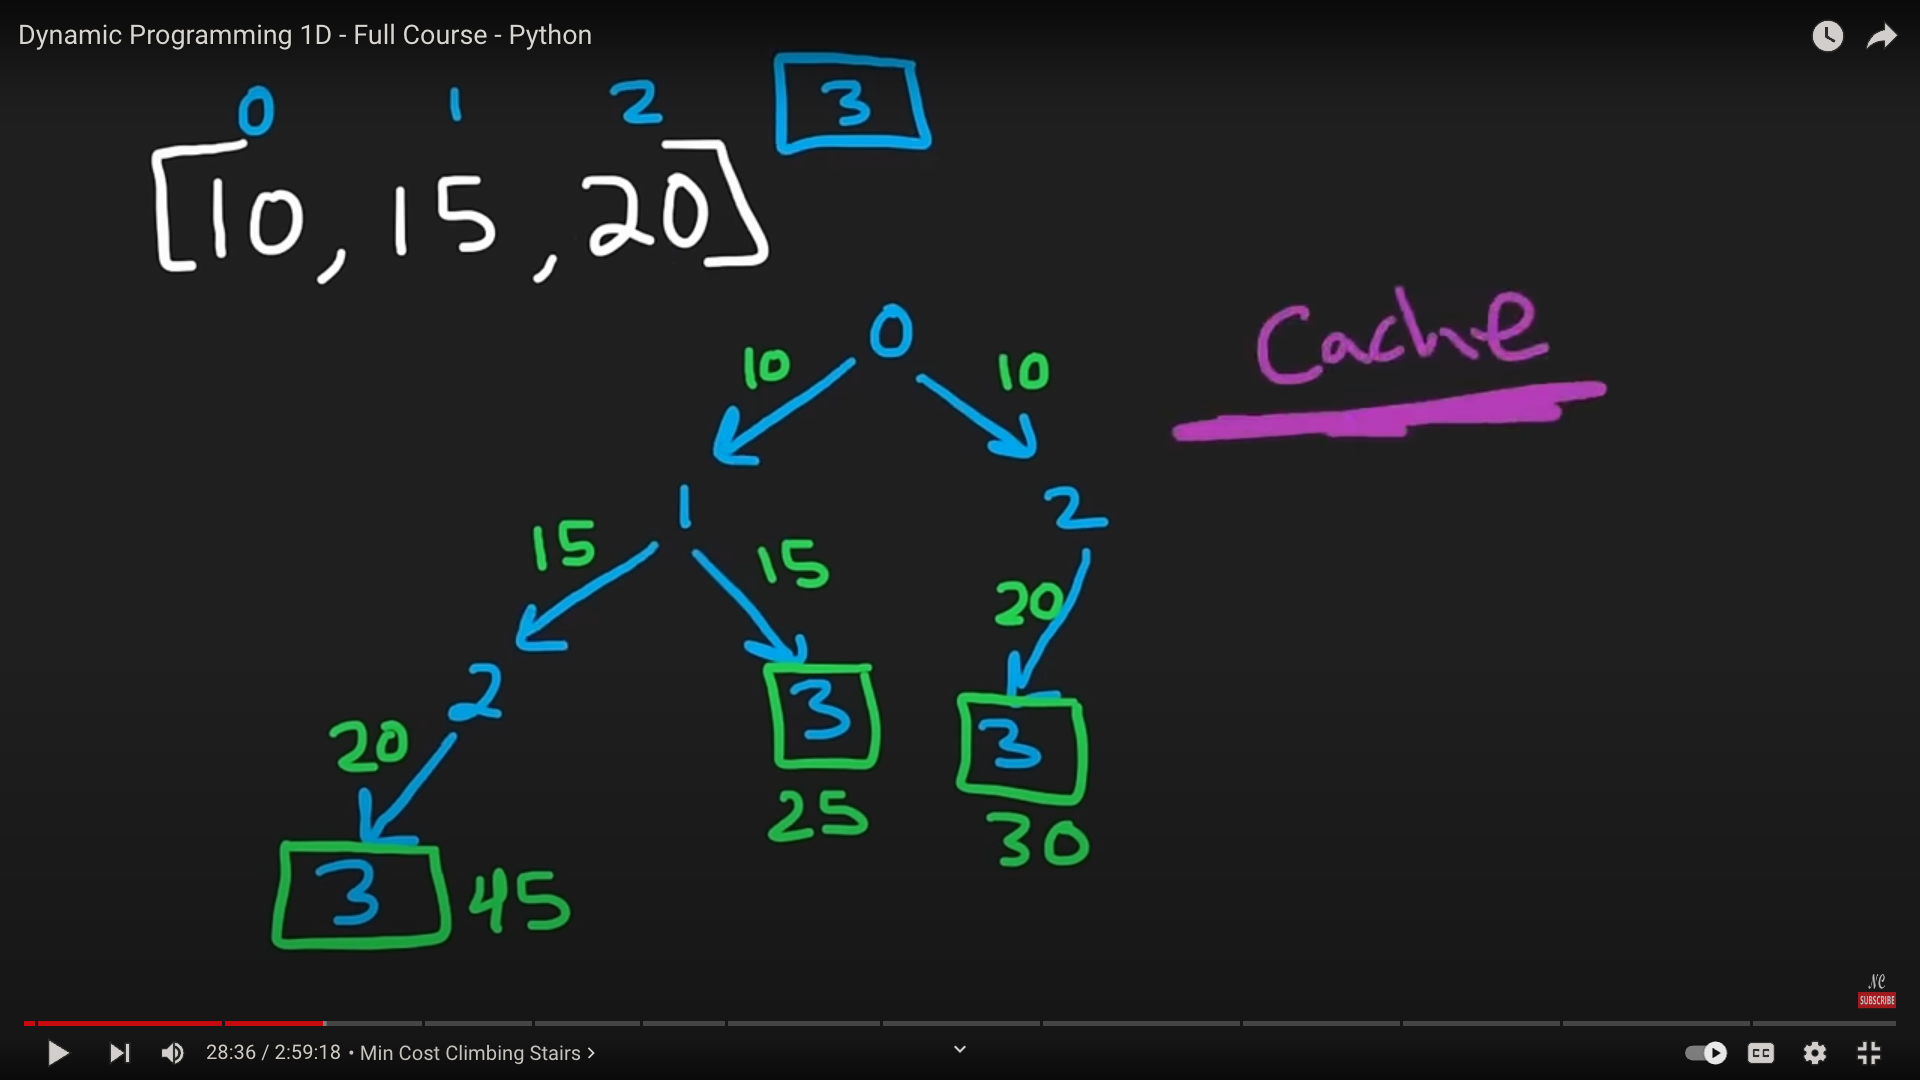 Dynamic Programming 1D - Full Course - Python
0 1 2 3
[10, 15, 20]
0
Cache
10 10
1 2
15 15 20
2 3 3
20 25 30
3 45
NC
SUBSCRIBE
28:36 / 2:59:18 • Min Cost Climbing Stairs >
CC